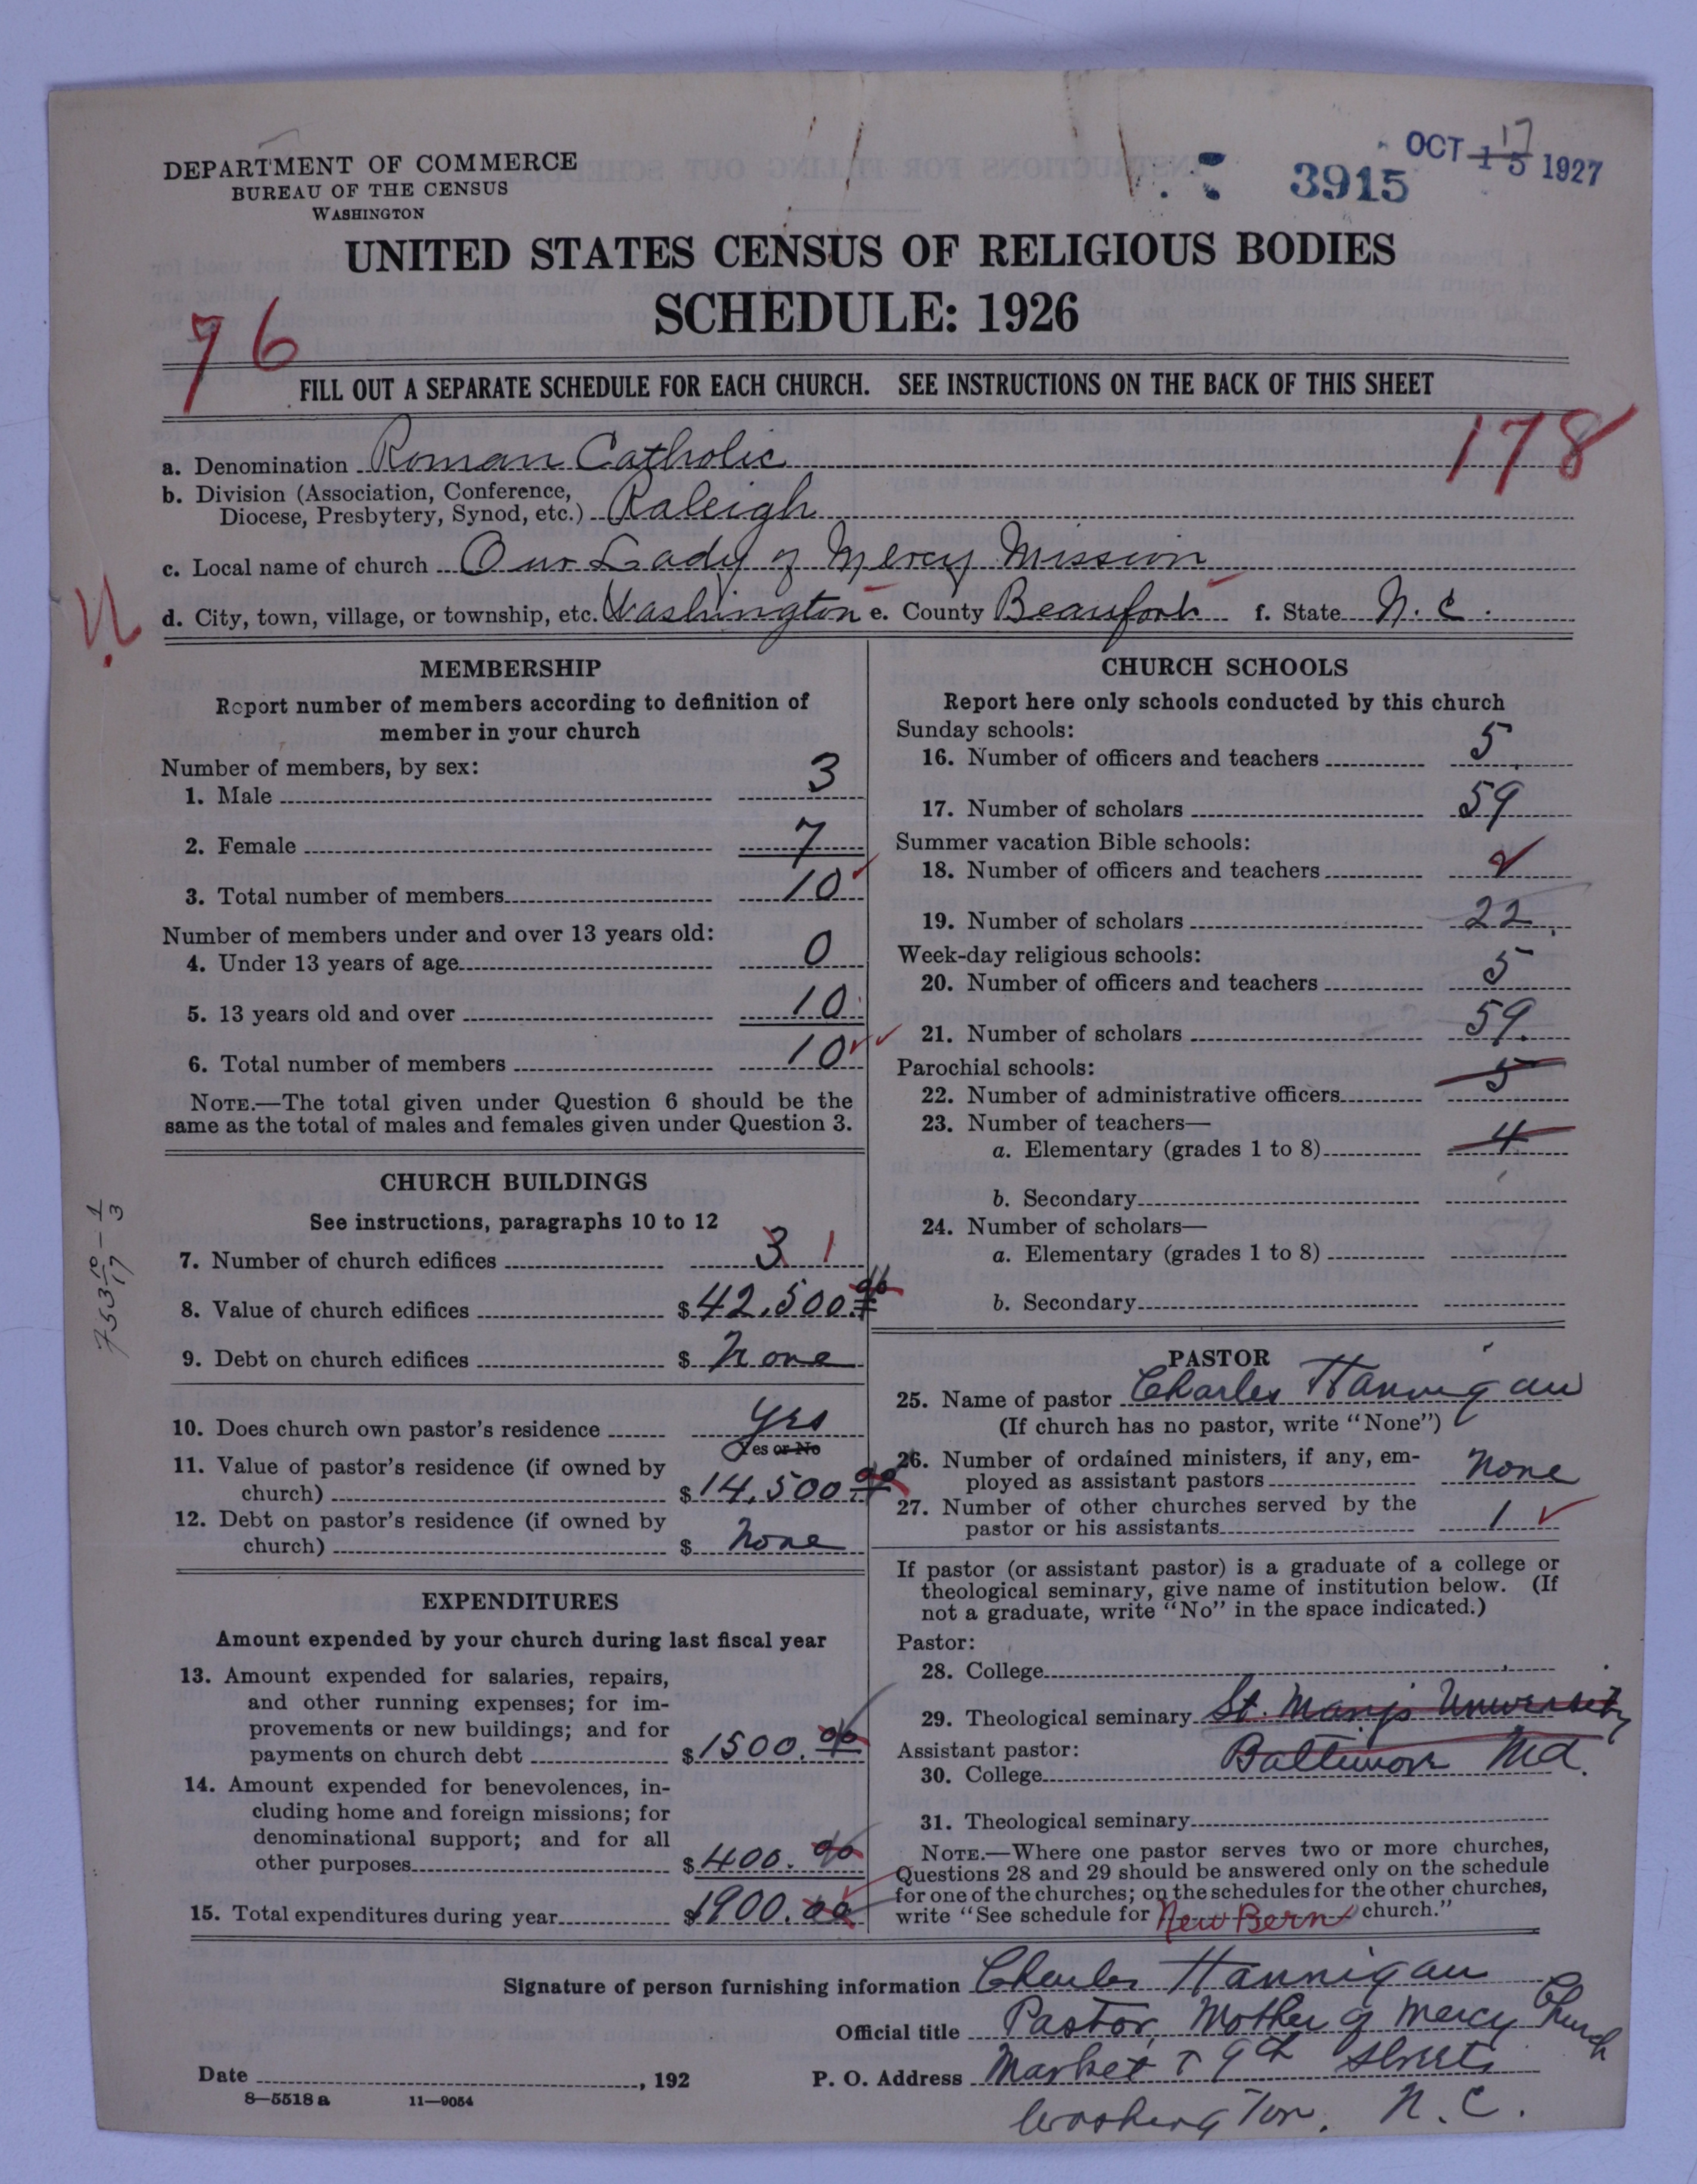 DEPARTMENT OF COMMERCE
BUREAU OF THE CENSUS
WASHINGTON
3915
OCT 15 1927
17
UNITED STATES CENSUS OF RELIGIOUS BODIES
SCHEDULE: 1926
76
FILL OUT A SEPARATE SCHEDULE FOR EACH CHURCH. SEE INSTRUCTIONS ON THE BACK OF THIS SHEET
178
a. Denomination Roman Catholic
b. Division (Association, Conference,
Diocese, Presbytery, Synod, etc.) Raleigh
c. Local name of church Our Lady of Mercy Mission
d. City, town, village, or township, etc. Washington e. County Beaufort f. State N.C.
MEMBERSHIP
Report number of members according to definition of
member in your church
Number of members, by sex:
1. Male 3
2. Female 7
3. Total number of members 10
Number of members under and over 13 years old:
4. Under 13 years of age 0
5. 13 years old and over 10
6. Total number of members 10
NOTE.—The total given under Question 6 should be the
same as the total of males and females given under Question 3.
CHURCH BUILDINGS
See instructions, paragraphs 10 to 12
7. Number of church edifices 3 1
8. Value of church edifices $42,500.00
9. Debt on church edifices $ None
10. Does church own pastor's residence yes
Yes or No
11. Value of pastor's residence (if owned by
church) $14,500.00
12. Debt on pastor's residence (if owned by
church) $ None
EXPENDITURES
Amount expended by your church during last fiscal year
13. Amount expended for salaries, repairs,
and other running expenses; for im-
provements or new buildings; and for
payments on church debt $1500.00
14. Amount expended for benevolences, in-
cluding home and foreign missions; for
denominational support; and for all
other purposes $400.00
15. Total expenditures during year $1900.00
CHURCH SCHOOLS
Report here only schools conducted by this church
Sunday schools:
16. Number of officers and teachers 5
17. Number of scholars 59
Summer vacation Bible schools:
18. Number of officers and teachers
19. Number of scholars 22
Week-day religious schools:
20. Number of officers and teachers 5
21. Number of scholars 59
Parochial schools:
22. Number of administrative officers 5
23. Number of teachers—
a. Elementary (grades 1 to 8) 4
b. Secondary
24. Number of scholars—
a. Elementary (grades 1 to 8)
b. Secondary
PASTOR
25. Name of pastor Charles Hannigan
(If church has no pastor, write "None")
26. Number of ordained ministers, if any, em-
ployed as assistant pastors None
27. Number of other churches served by the
pastor or his assistants 1
If pastor (or assistant pastor) is a graduate of a college or
theological seminary, give name of institution below. (If
not a graduate, write "No" in the space indicated.)
Pastor:
28. College
29. Theological seminary St. Mary's University
Assistant pastor: Baltimore Md.
30. College
31. Theological seminary
NOTE.—Where one pastor serves two or more churches,
Questions 28 and 29 should be answered only on the schedule
for one of the churches; on the schedules for the other churches,
write "See schedule for New Bern church."
Signature of person furnishing information Charles Hannigan
Official title Pastor, Mother of Mercy Church
Date , 192
P. O. Address Market & 9th Streets
Washington, N.C.
8—5518 a 11—9054